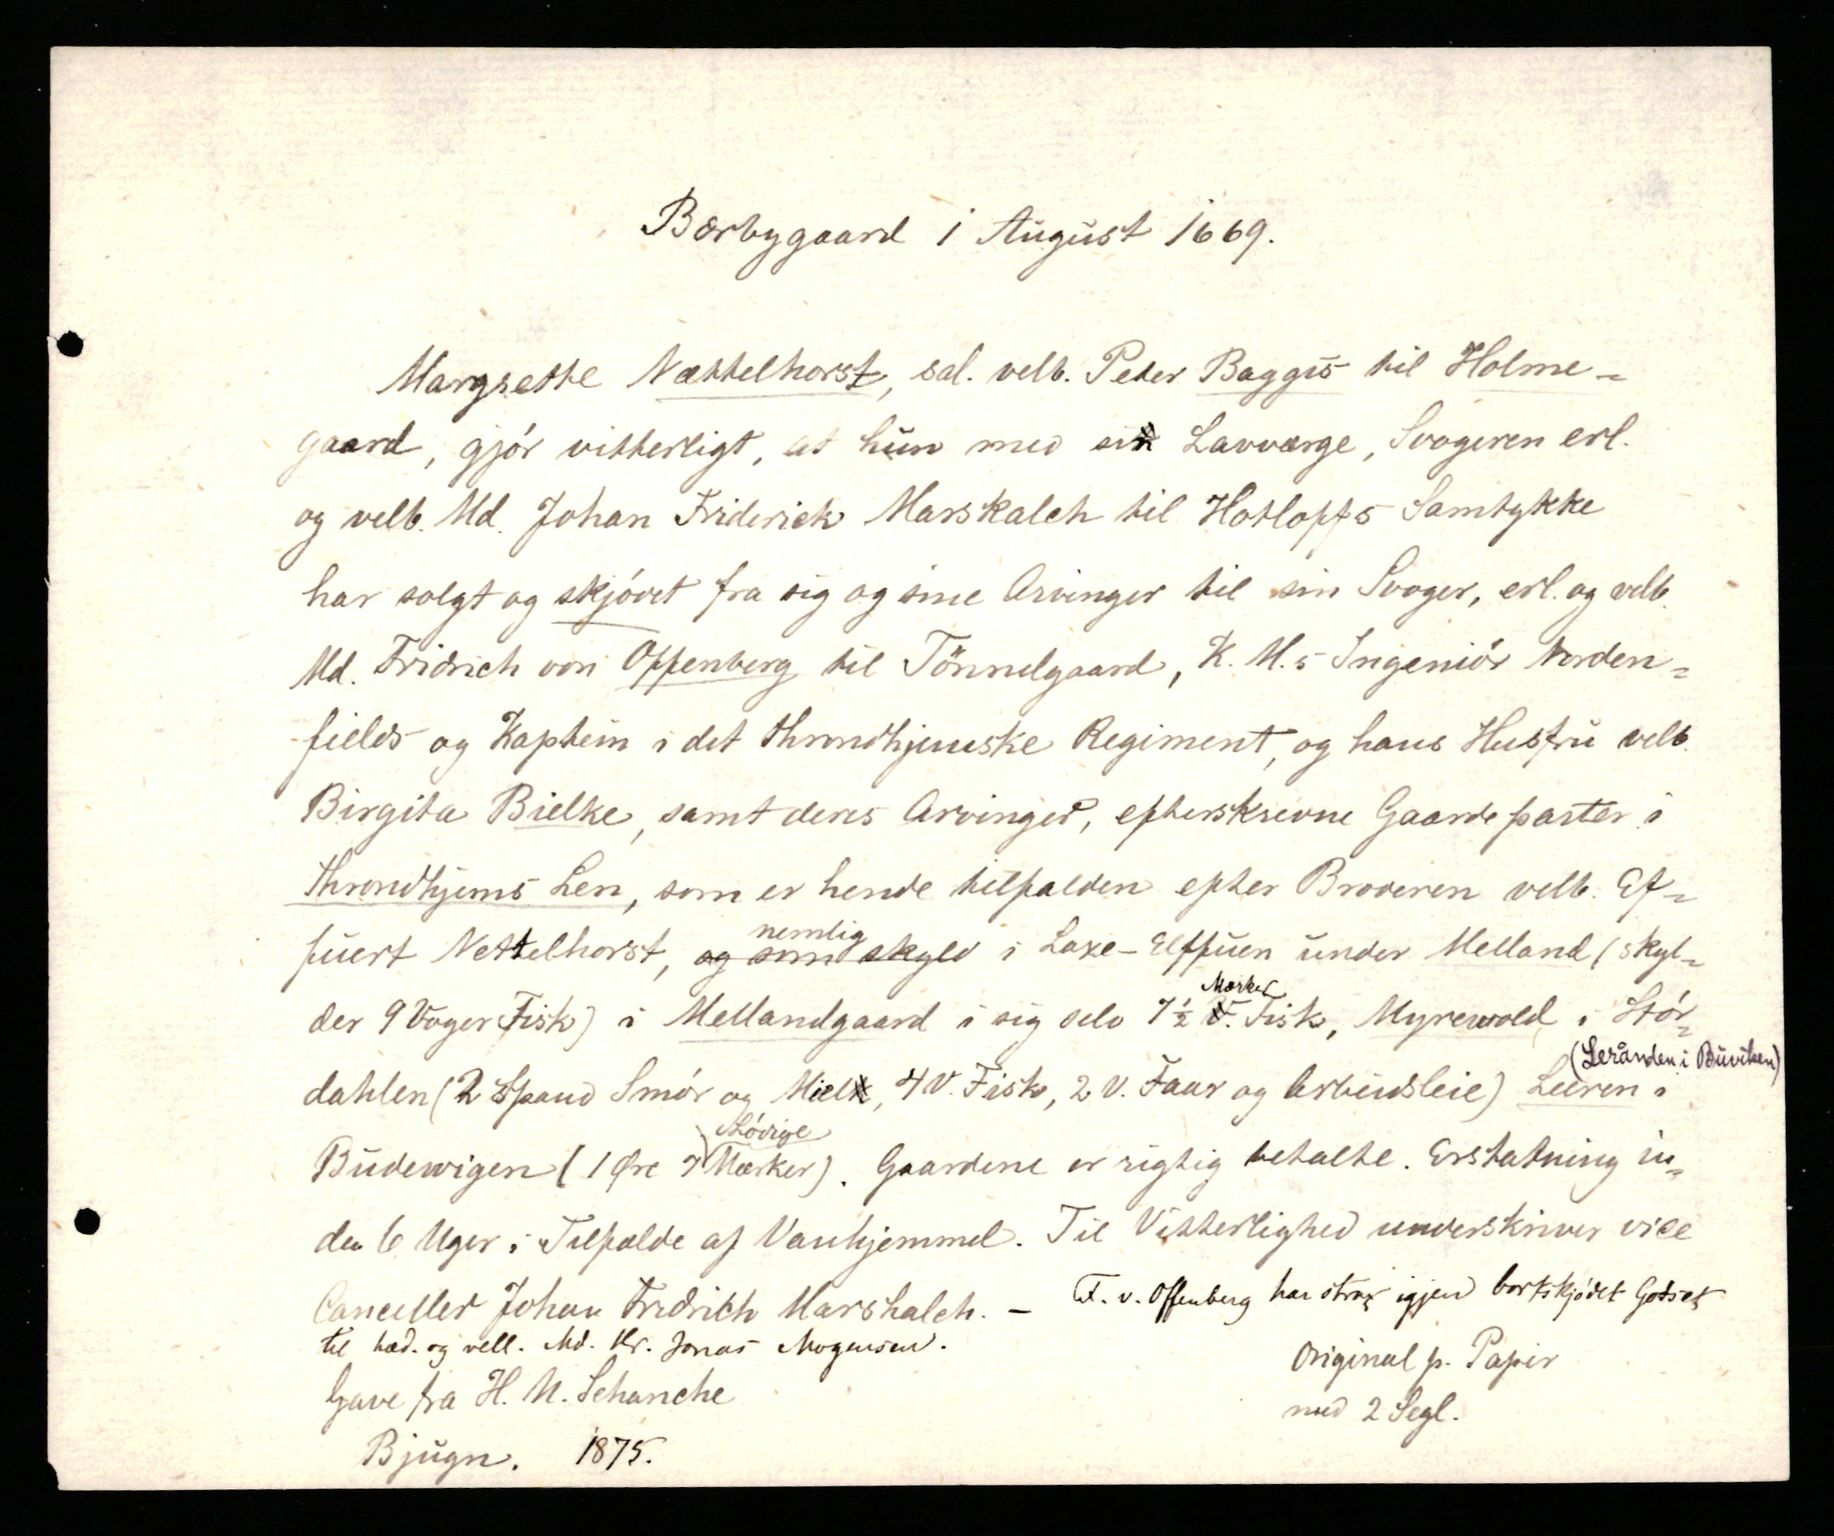 Bærbygaard 1 August 1669.
Margrette Nættelhorst, sal. velb. Peter Bagges til Holme-
gaard, gjör vitterligt, at hun med sin Lavværge, Svogeren erl.
og velb. Md. Johan Friderick Marskalch til Hotlopfs Samtykke
har solgt og skjövet fra sig og sine Arvinger til sin Svoger, erl. og velb.
Md. Fridrich von Offenberg til Tönnelgaard, K. M.s Ingeniör Norden-
fields og Kaptein i det throndhjemske Regiment, og hans Husfru velb.
Birgita Bielke, samt deres Arvinger, efterskrevne Gaardeparter i
Throndhjems Len, som er hende tilfalden efter Broderen velb. Ef-
fuert Nettelhorst, og som skyld nemlig i Laxe-Elffuen under Melland (skyl-
der 9 Voger Fisk) i Mellandgaard i sig selv 7½ V. Mærker Fisk, Myrewold i Stör-
dahlen (2 Spand Smör og Miel, 4 V. Fisk, 2 V. Faar og Arbeidsleie) Leeren i (Leranden i Buviken)
Budewigen (1 Øre 7 Lödige Mærker). Gaardene er rigtig betalte. Erstatning in-
den 6 Uger i Tilfælde af Vanhjemmel. Til Vitterlighed underskriver vice
Canceller Johan Fridrich Marshalch. – F. v. Offenberg har strax igjen bortskjödet Godset
til hæd. og vell. Md. Hr. Jonas Mogensen.
Original p. Papir
med 2 Segl.
Gave fra H. N. Schanche
Bjugn. 1875.